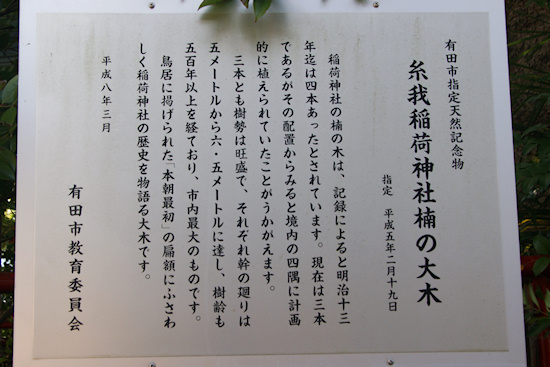 有田市指定天然記念物
糸我稲荷神社楠の大木
指定 平成五年二月十九日
稲荷神社の楠の木は、記録によると明治十三
年迄は四本あったとされています。現在は三本
であるがその配置からみると境内の四隅に計画
的に植えられていたことがうかがえます。
三本とも樹勢は旺盛で、それぞれ幹の廻りは
五メートルから六・五メートルに達し、樹齢も
五百年以上を経ており、市内最大のものです。
鳥居に掲げられた「本朝最初」の扁額にふさわ
しく稲荷神社の歴史を物語る大木です。
平成八年三月
有田市教育委員会